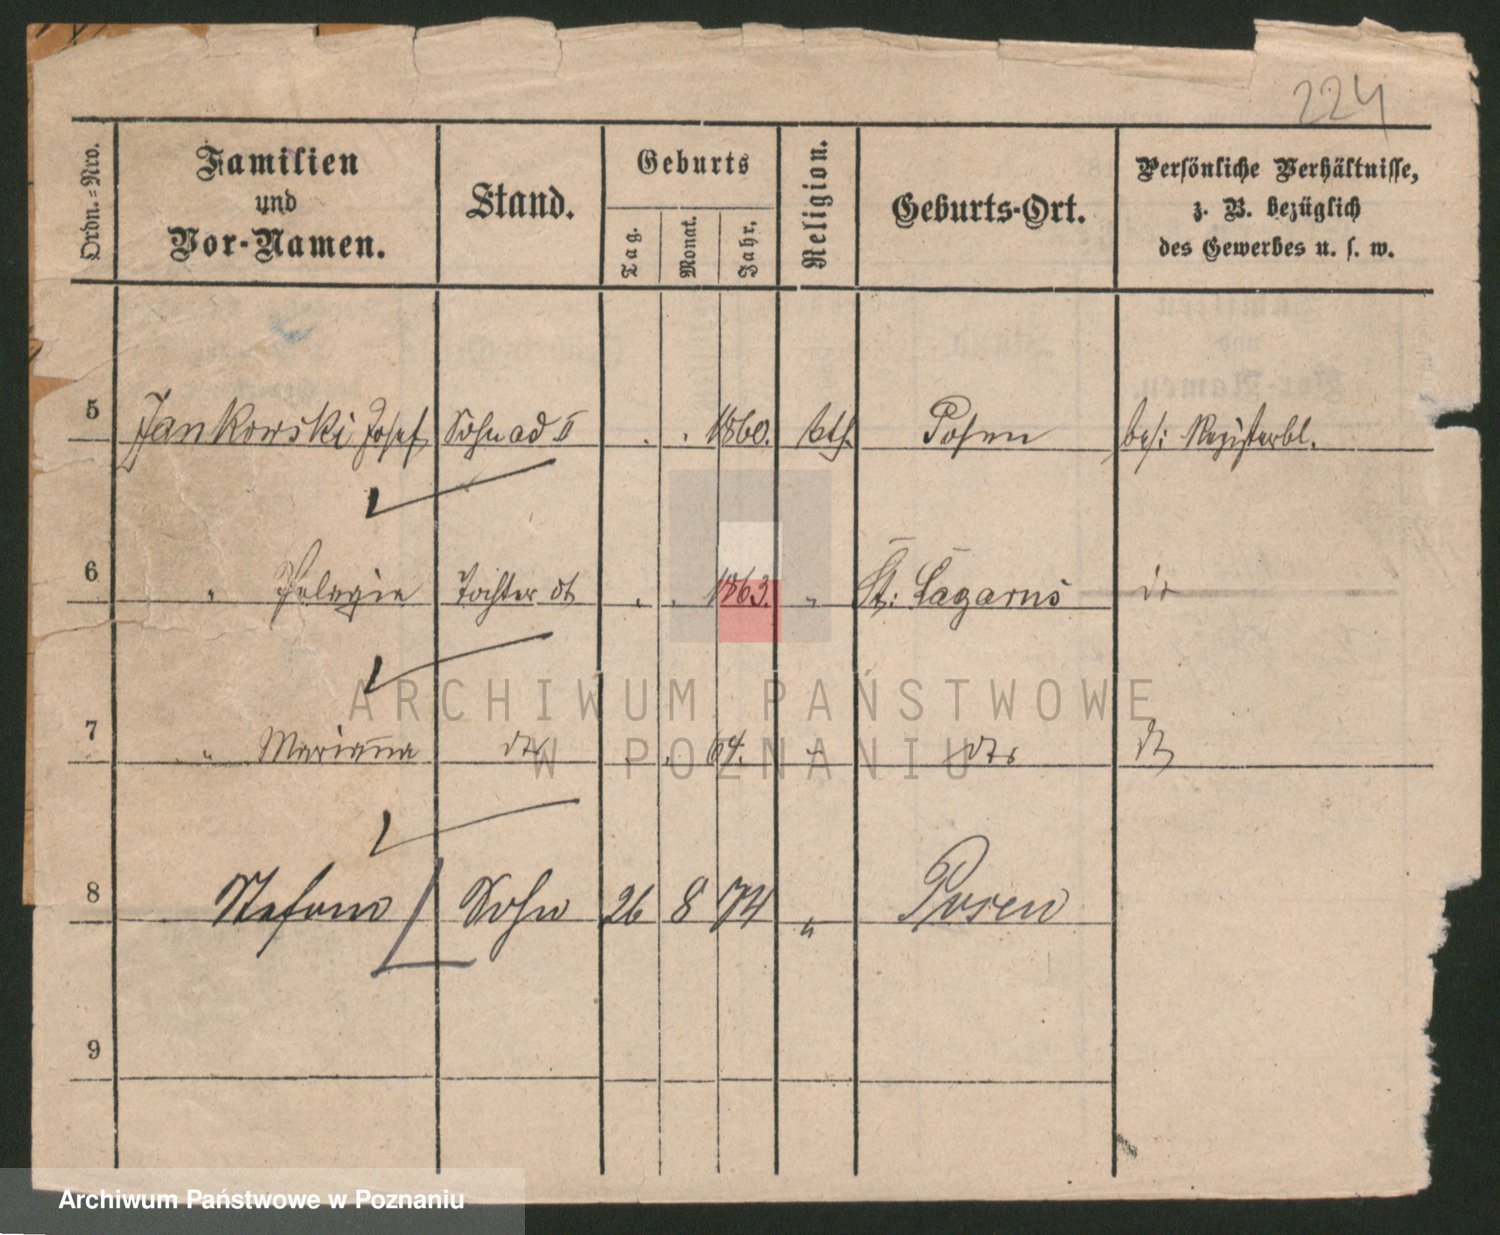 224
Ordn.=Nro.
Familien
und
Vor-Namen.
Stand.
Geburts
Tag.
Monat.
Jahr.
Religion.
Geburts-Ort.
Persönliche Verhältnisse,
z. B. bezüglich
des Gewerbes u. s. w.
5 Jankowski Josef Sohn ad II . . 1860. kth. Posen bes: Registerbl.
6 " Pelagia Tochter dto . . 1863. " St: Lazarus dt
7 " Marianna dto . 64. " dto dt
8 Stefan Sohn 26 8 74 " Posen
9
ARCHIWUM PAŃSTWOWE
W POZNANIU
Archiwum Państwowe w Poznaniu